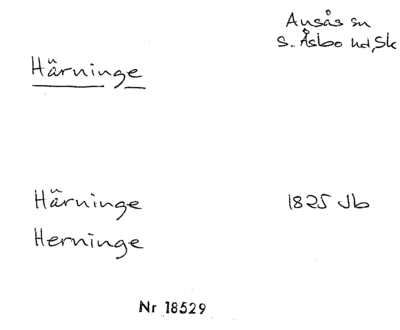 Ausås sn
S. Åsbo hd, Sk
Härninge
Härninge 1825 Jb
Herninge
Nr 18529